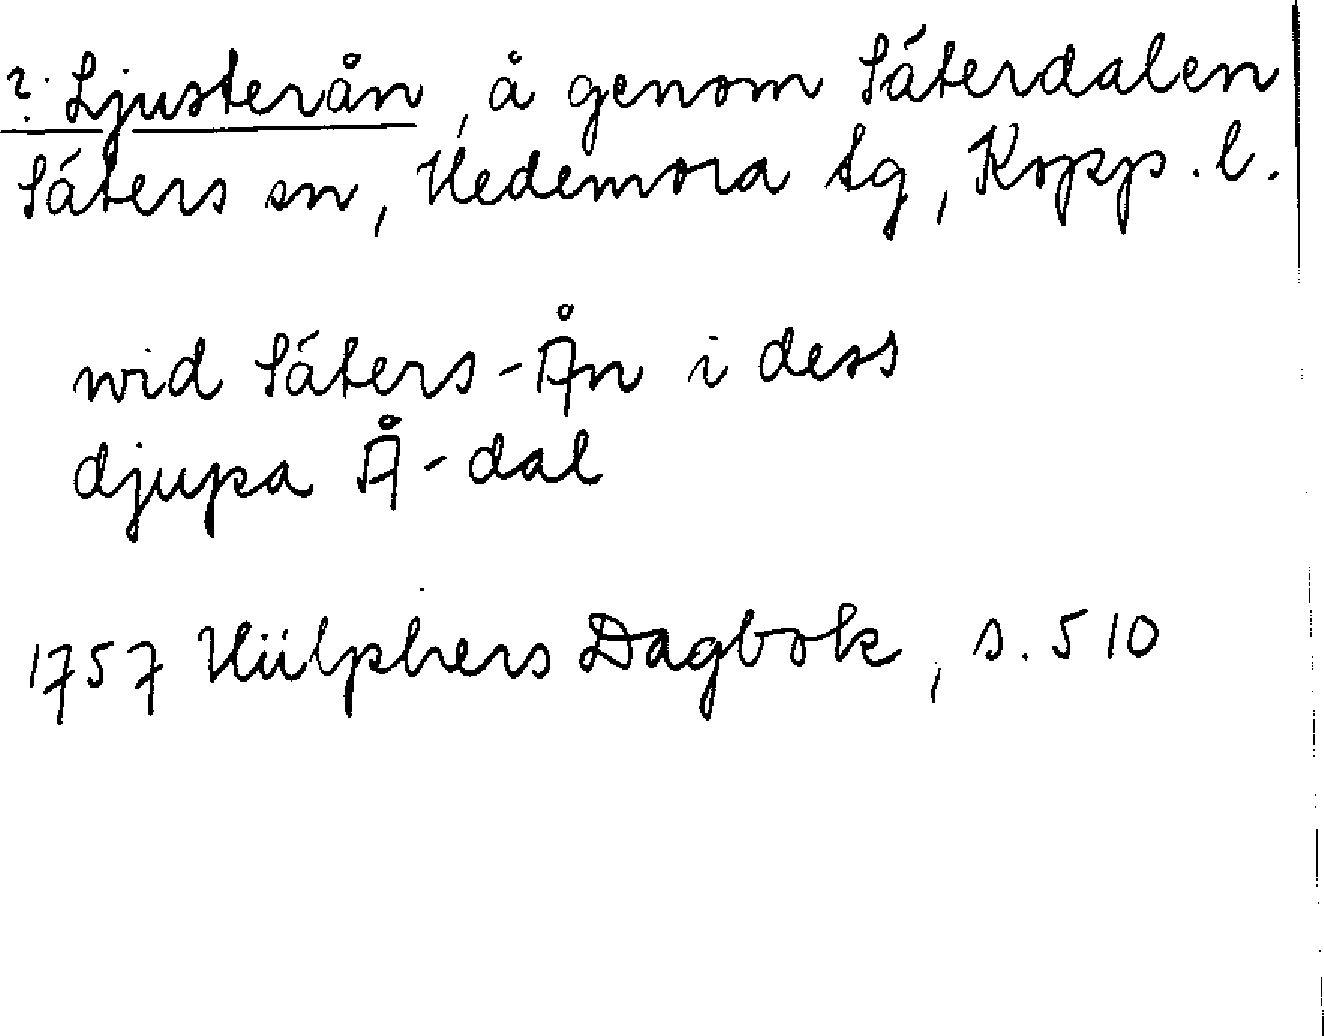 ?: Ljusterån, å genom Säterdalen
Säters sn, Hedemora tg, Kopp. l.
wid Säters-Ån i dess
djupa Å-dal
1757 Hülphers Dagbok, s. 510